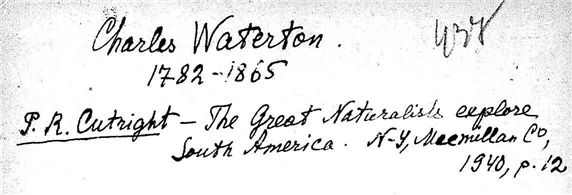 Charles Waterton. 437
1782-1865
P. R. Cutright - The Great Naturalists explore
South America. N-Y, Macmillan Co,
1940, p. 12